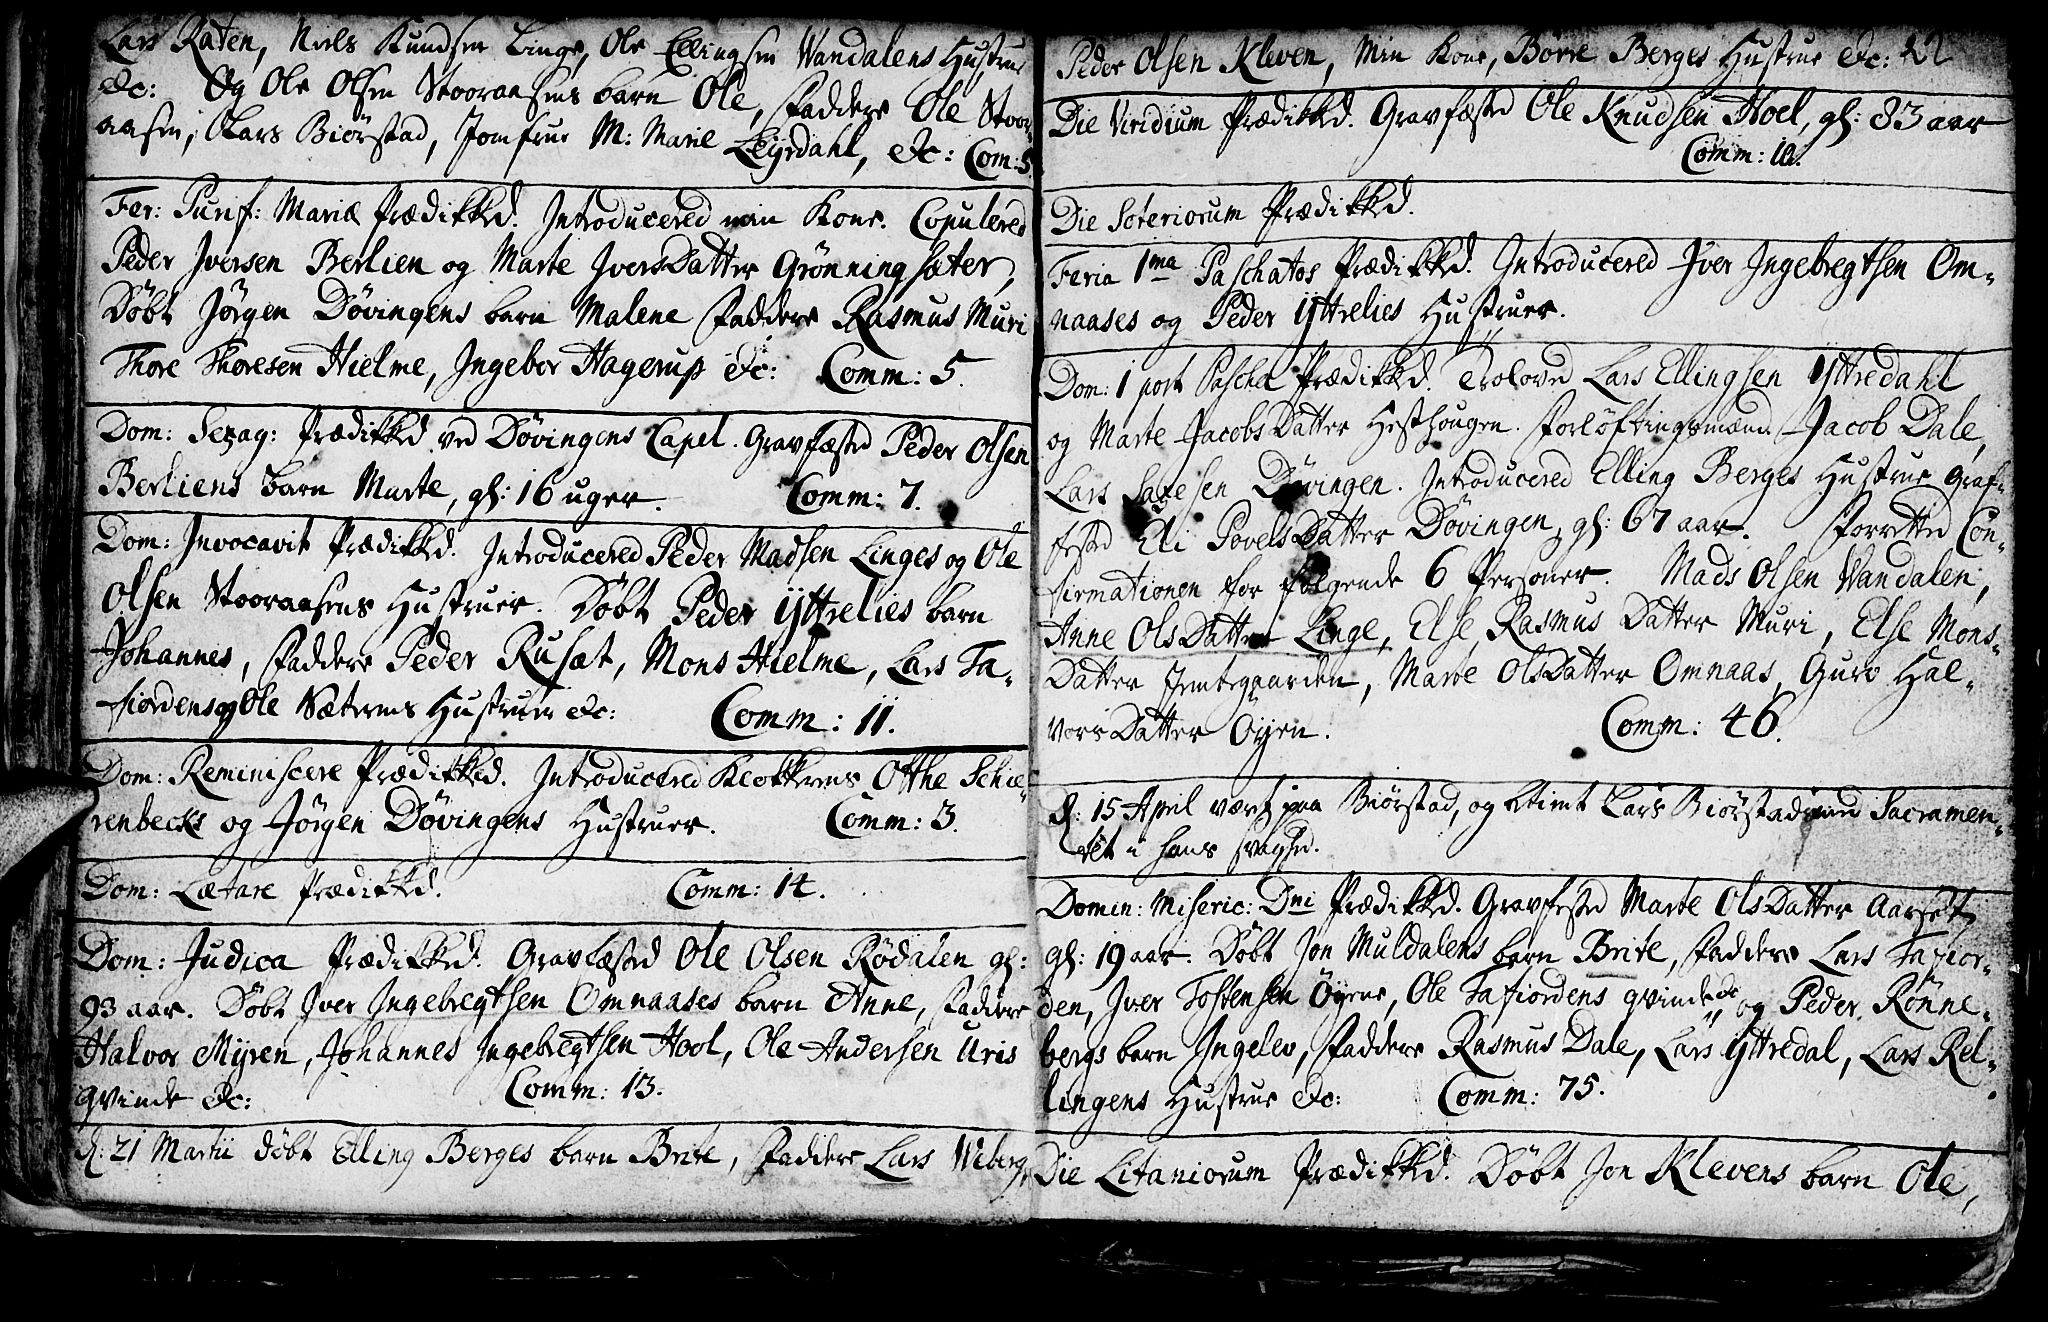 Lars Raten, Niels Knudsen Linge, Ole Ellingsen Vandalens Hustrue
&c: Og Ole Olsen Stooraasens barn Ole, Faddere Ole Stoor-
aasen, Lars Biörstad, Jomfrue M: Marie Leyrdahl, &c: Com: 5.
Fer: Purif: Mariæ Prædikked. Introducered min Kone. Copulered
Peder Jversen Berlien og Marte JversDatter Grönningsæter,
Döbt Jörgen Dövingens barn Malene Faddere Rasmus Muri
Thore Thoresen Hielme, Ingebor Hagerup &c: Comm: 5.
Dom: Sexag: Prædikked ved Dövingens Capel. Gravfæsted Peder Olsen
Berliens barn Marte, gl: 16 uger. Comm: 7.
Dom: Invocavit Prædikked. Introducered Peder Madsen Linges og Ole
Olsen Stooraasens Hustruer. Döbt Peder Yttrelies barn
Johannes, Faddere Peder Rusæt, Mons Hielme, Lars Ta-
fiordens og Ole Sæterens Hustruer &c: Comm: 11.
Dom: Reminiscere Prædikked. Introducered Klokkerens Otthe Schie-
renbecks og Jörgen Dövingens Hustruer. Comm: 3.
Dom: Lætare Prædikked. Comm: 14.
Dom: Judica Prædikked. Gravfæsted Ole Olsen Rödalen gl:
93 aar. Döbt Jver Ingebregtsen Omnaases barn Anne, Faddere
Halvor Myren, Johannes Ingebregtsen Hoel, Ole Andersen Uris
qvinde &c: Comm: 13.
d: 21 Martii döbt Elling Berges barn Brite, Faddere Lars Weberg,
Peder Olsen Kleven, Min Kone, Börre Berges Hustrue &c: 22
Die Viridium Prædikked. Gravfæsted Ole Knudsen Hoel, gl: 83 aar
Comm: 10.
Die Soteriorum Prædikked.
Feria 1ma Paschatos Prædikked. Introducered Jver Ingebregtsen Om-
naases og Peder Yttrelies Hustruer.
Dom: 1 post Pascha Prædikked. Troloved Lars Ellingsen Yttredahl
og Marte JacobsDatter Hesthougen. Forlöftingsmænd Jacob Dale,
Lars Larsen Dövingen. Introducered Elling Berges Hustrue Graf-
fested Eli PovelsDatter Dövingen, gl: 67 aar. Forretted Con-
firmationen for fölgende 6 Personer. Mads Olsen Vandalen,
Anne OlsDatter Linge, Else RasmusDatter Muri, Else Mons-
Datter Jnntegaarden, Marte OlsDatter Omnaas, Guro Hal-
vorsDatter Öyen. Comm: 46.
d: 15 April været paa Biörstad, og betient Lars Biörstad med Sacramen-
tet i hans svaghed.
Domin: Miseric: Dni Prædikked. Gravfested Marte OlsDatter Aarset,
gl: 19 aar. Döbt Jon Muldalens barn Brite, Faddere Lars Tafior-
den, Jver Tostensen Öyene, Ole Tafiordens qvinde &c og Peder Rönne-
bergs barn Ingelev, Faddere Rasmus Dale, Lars Yttredal, Lars Rel-
lingens Hustrue &c: Comm: 75.
Die Litaniorum Prædikked. Döbt Jon Klevens barn Ole,